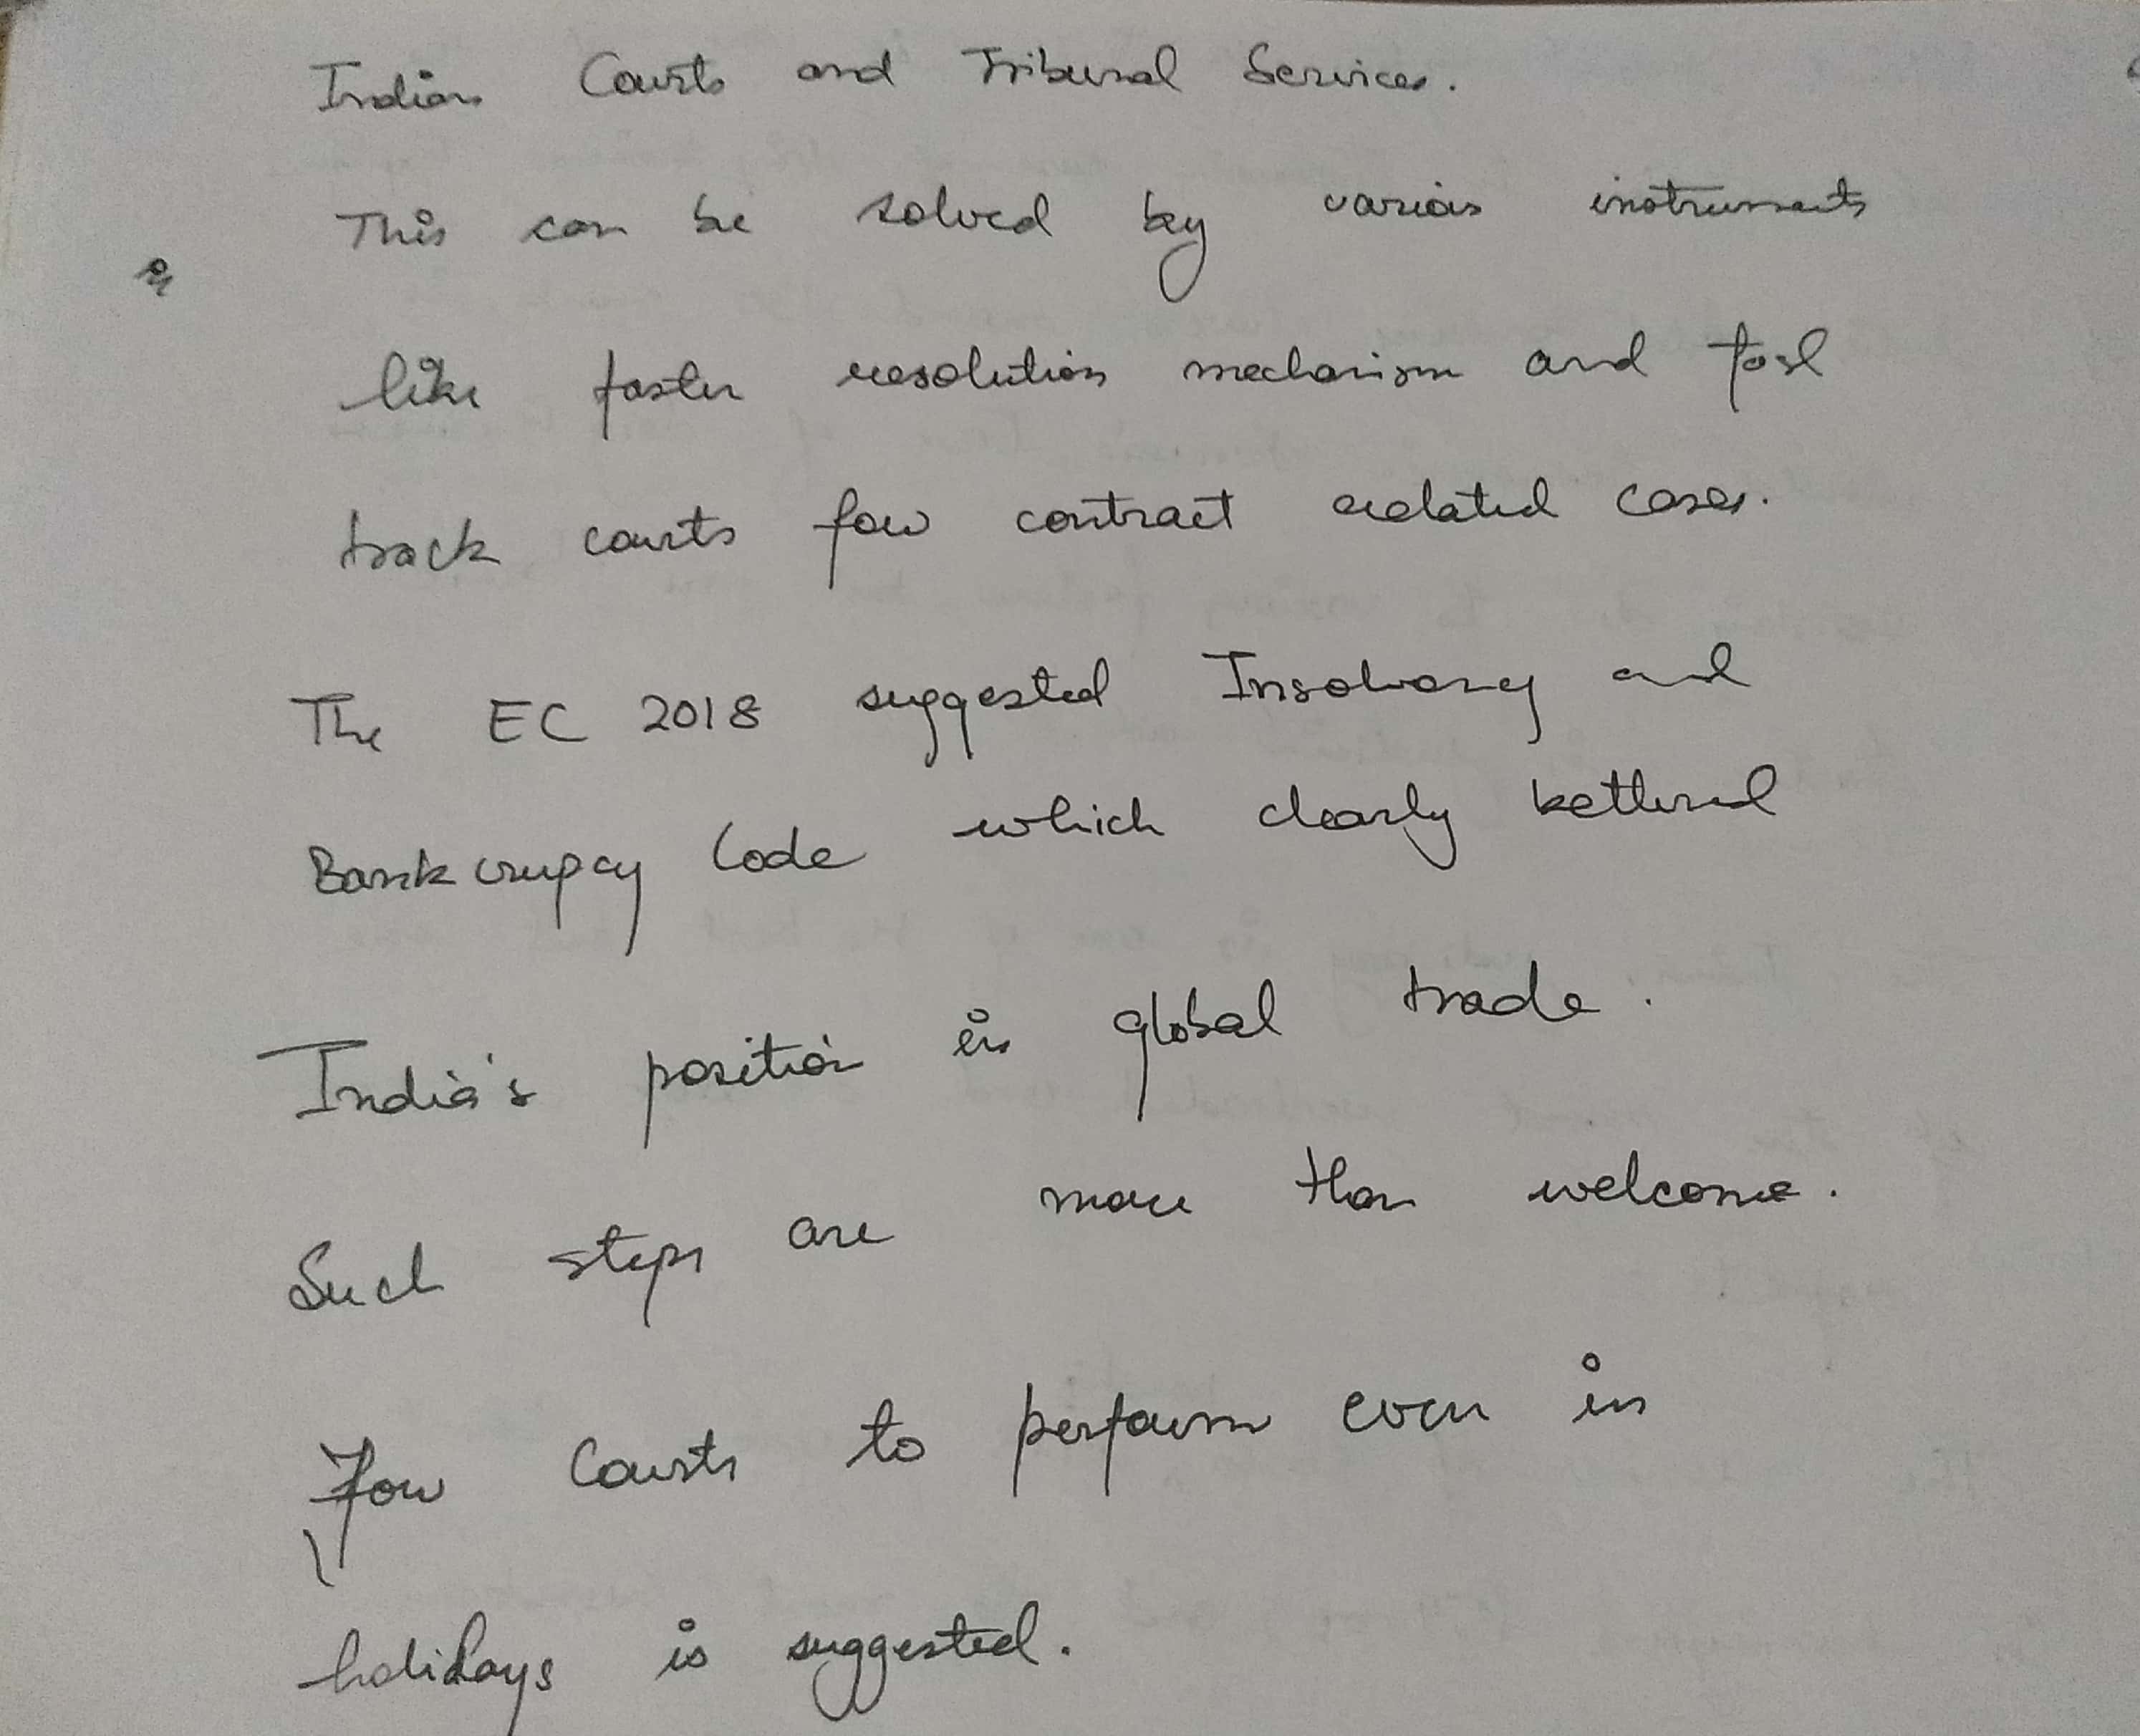 Indian Courts and Tribunal Services.
This can be solved by various instruments
like faster resolution mechanism and fast
track courts for contract related cases.
The EC 2018 suggested Insolvency and
Bankcrupcy Code which clearly bettered
India's position in global trade.
Such steps are more than welcome.
For Courts to perform even in
holidays is suggested.